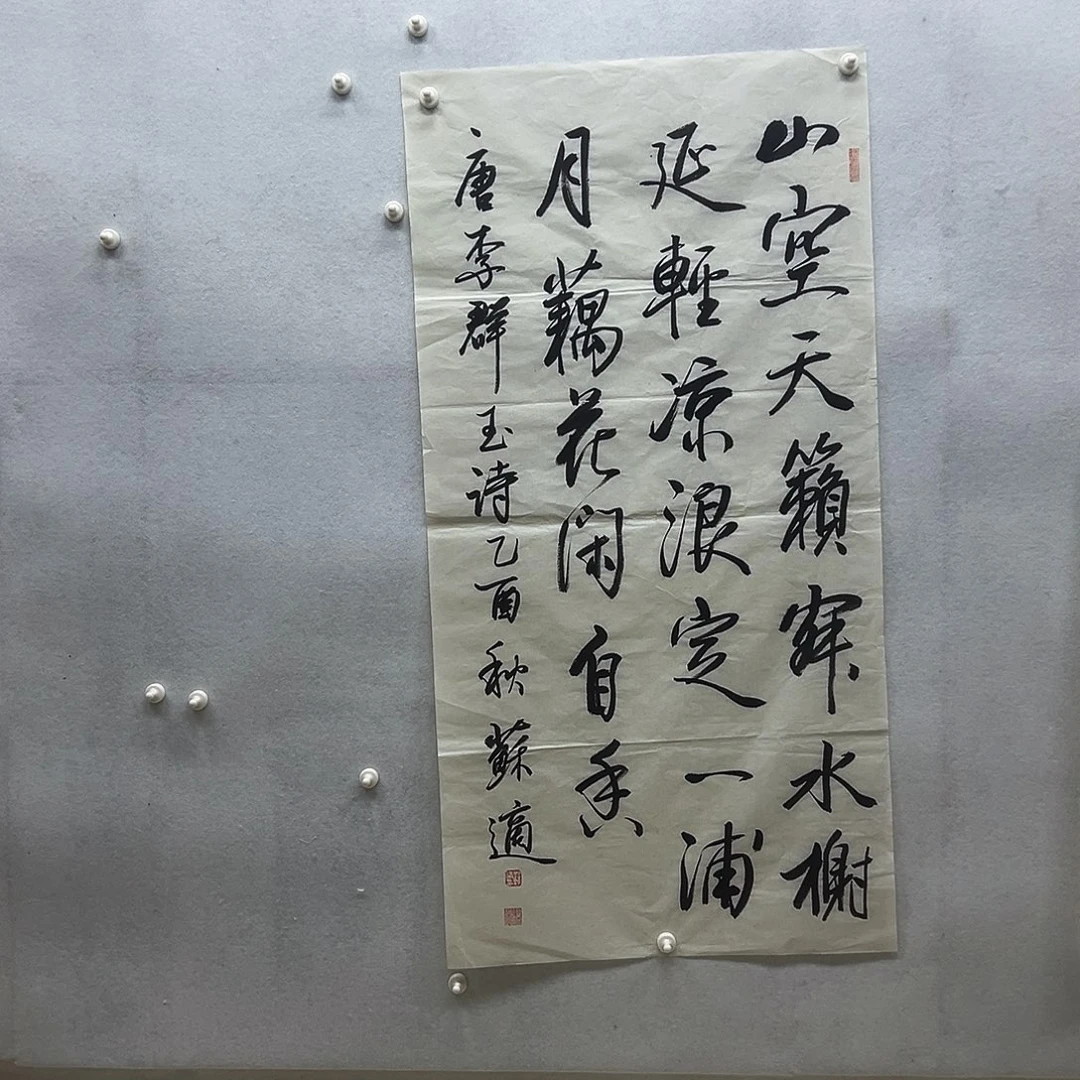 山空天籟寂水榭
延輕涼浪定一浦
月藕花閑自香
唐李群玉诗乙酉秋蘇適